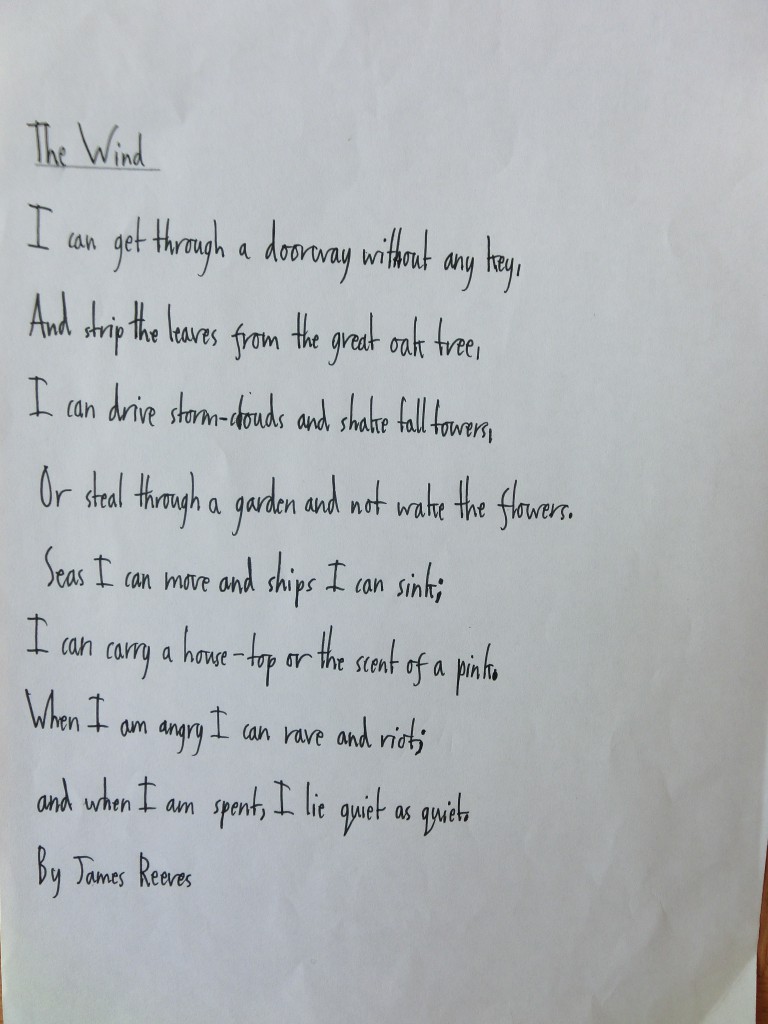 The Wind
I can get through a doorway without any key,
And strip the leaves from the great oak tree,
I can drive storm-clouds and shake tall towers,
Or steal through a garden and not wake the flowers.
Seas I can move and ships I can sink;
I can carry a house-top or the scent of a pink.
When I am angry I can rave and riot;
and when I am spent, I lie quiet as quiet.
By James Reeves